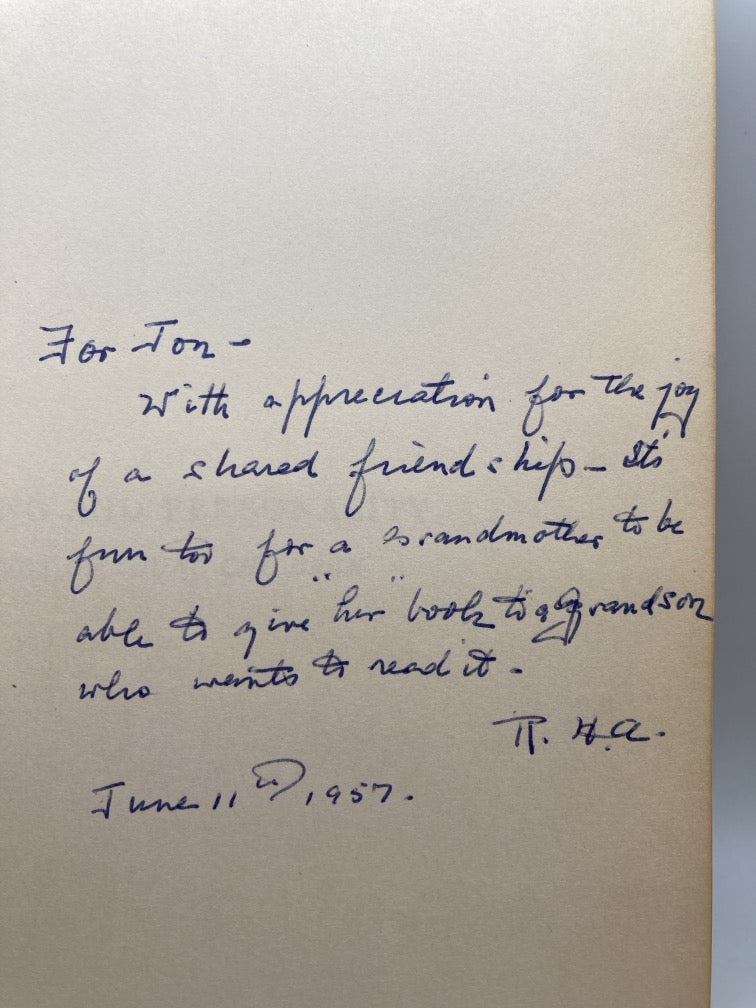 For Jon -
With appreciation for the joy
of a shared friendship - It's
fun too for a Grandmother to be
able to give "her" book to a Grandson
who wants to read it -
R. H. A.
June 11th, 1957.